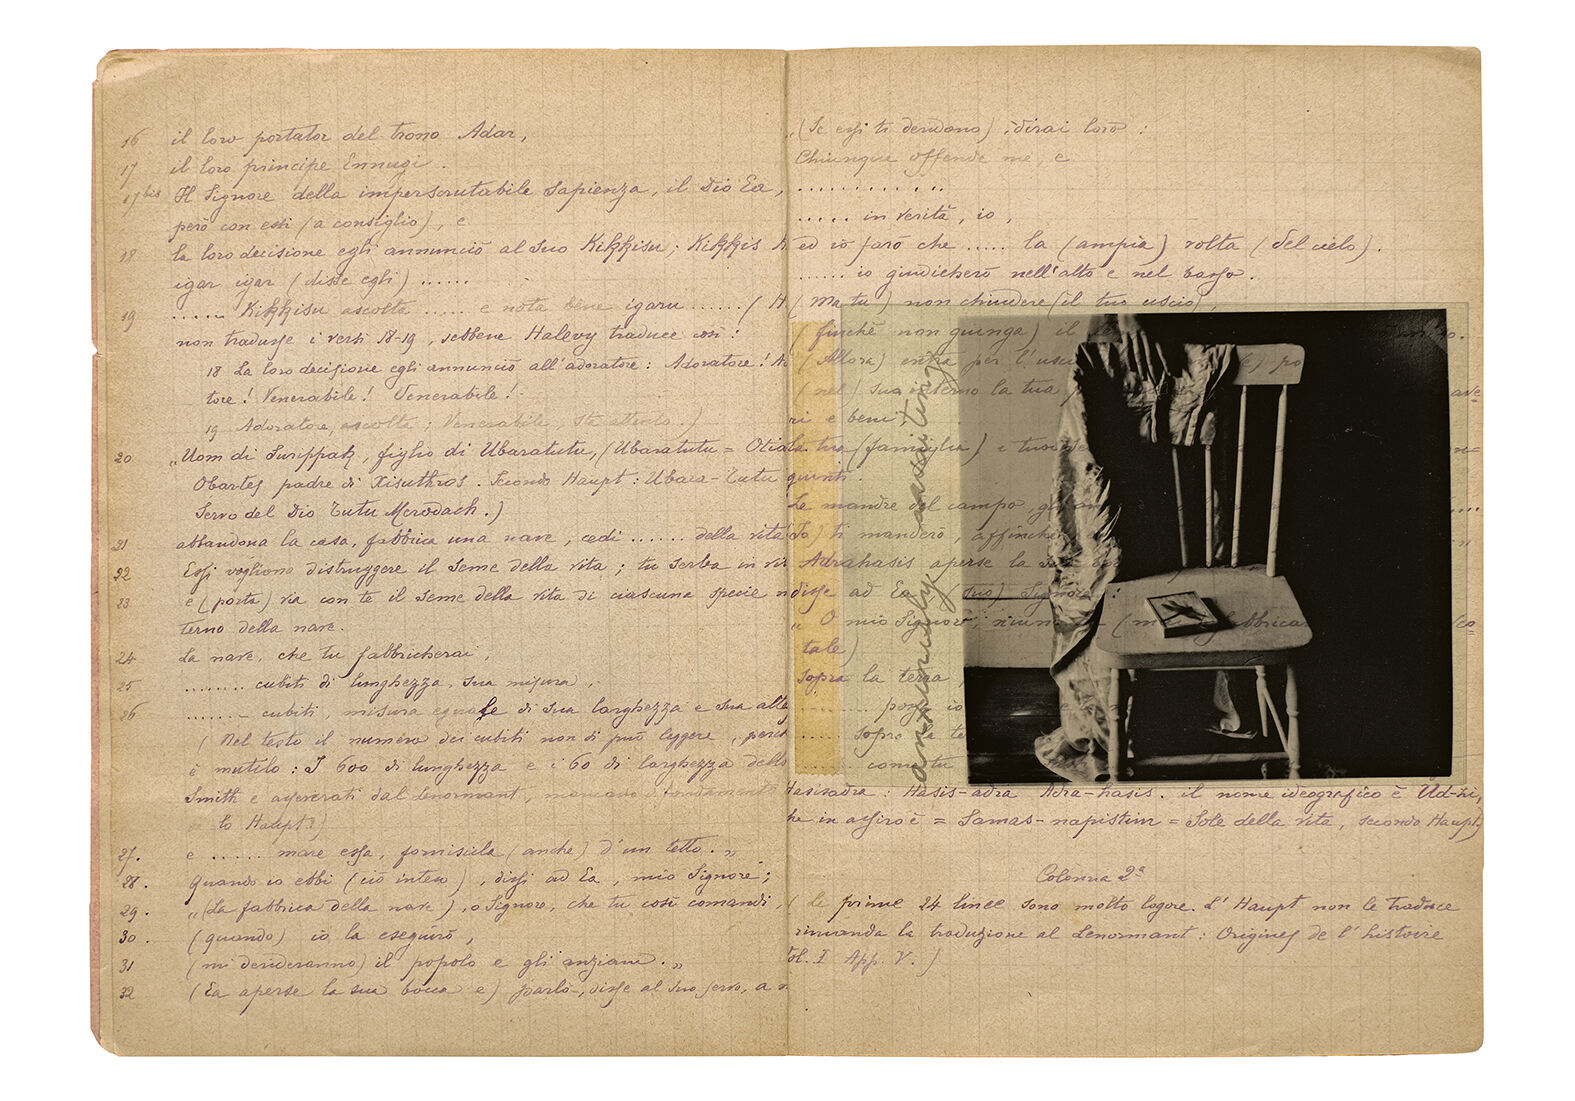 16 il loro portator del trono Adar,
17 il loro principe Ennugi.
17 bis Il Signore della imperscrutabile sapienza, il Dio Ea,
però con essi (a consiglio), e
18 la loro decisione egli annunciò al suo Kikkisu; Kikkis
igar igar (disse egli) ......
19 ..... Kikkisu ascolta ..... e nota bene igaru ...... (
non tradusse i versi 18-19, sebbene Halevy traduce così:
18 La loro decisione egli annunciò all'adoratore: Adoratore! Ad
tore! Venerabile! Venerabile!
19 Adoratore, ascolta; Venerabile, sta attento.)
20 „Uom di Surippak, figlio di Ubaratutu, (Ubaratutu =
Obartes padre di Xisuthros. Secondo Haupt: Ubara-Tutu
servo del Dio Tutu Merodach.)
21 abbandona la casa, fabbrica una nave, cedi ....... della vita
22 Essi vogliono distruggere il seme della vita; tu serba in vit
23 e (porta) via con te il seme della vita di ciascuna specie
terno della nave.
24 La nave, che tu fabbricherai,
25 ........ cubiti di lunghezza, sua misura,
26 ........ cubiti, misura eguale di sua larghezza e sua alte
(Nel testo il numero dei cubiti non si può leggere, perch
è mutilo: I 600 di lunghezza e i 60 di larghezza dello
Smith e asserati dal Lenormant,
lo Haupt)
27. e ...... mare essa, forniscila (anche) d'un tetto.„
28. Quando io ebbi (ciò inteso), dissi ad Ea, mio Signore;
29. „(La fabbrica della nave), o Signore, che tu così comandi,
30. (quando) io la eseguirò,
31 (mi derideranno) il popolo e gli anziani.„
32 (Ea aperse la sua bocca e) parlò, disse al suo servo, a
„(Se essi ti deridono), dirai loro:
Chiunque offende me, e
...........
..... in verità, io,
ed io farò che ..... la (ampia) volta (del cielo).
...... io giudicherò nell'alto e nel basso.
(Ma tu) non chiudere (il tuo uscio)
(finchè non giunga) il
(Allora) entra per l'usc
(nel) suo interno la tua
ri e beni
tua (famiglia) e
giunti.
Le mandre del campo, gli
Io) ti manderò, affinchè
Adrahasis aperse la sua
disse ad Ea (suo) Signore:
„O mio Signore, niun (m fabbrica
tale)
sopra la terra
io
..... sopra la te
..... come tu
antimidly awaiting
Hasisadra: Hasis-adra Adra-hasis. il nome ideografico è Ud-zi,
che in assiro è = Samas-napistim = Sole della vita, secondo Haupt)
Colonna 2ª
(Le prime 24 linee sono molto logore. L'Haupt non le traduce
rimanda la traduzione al Lenormant: Origines de l'histoire
Vol. I App. V.)